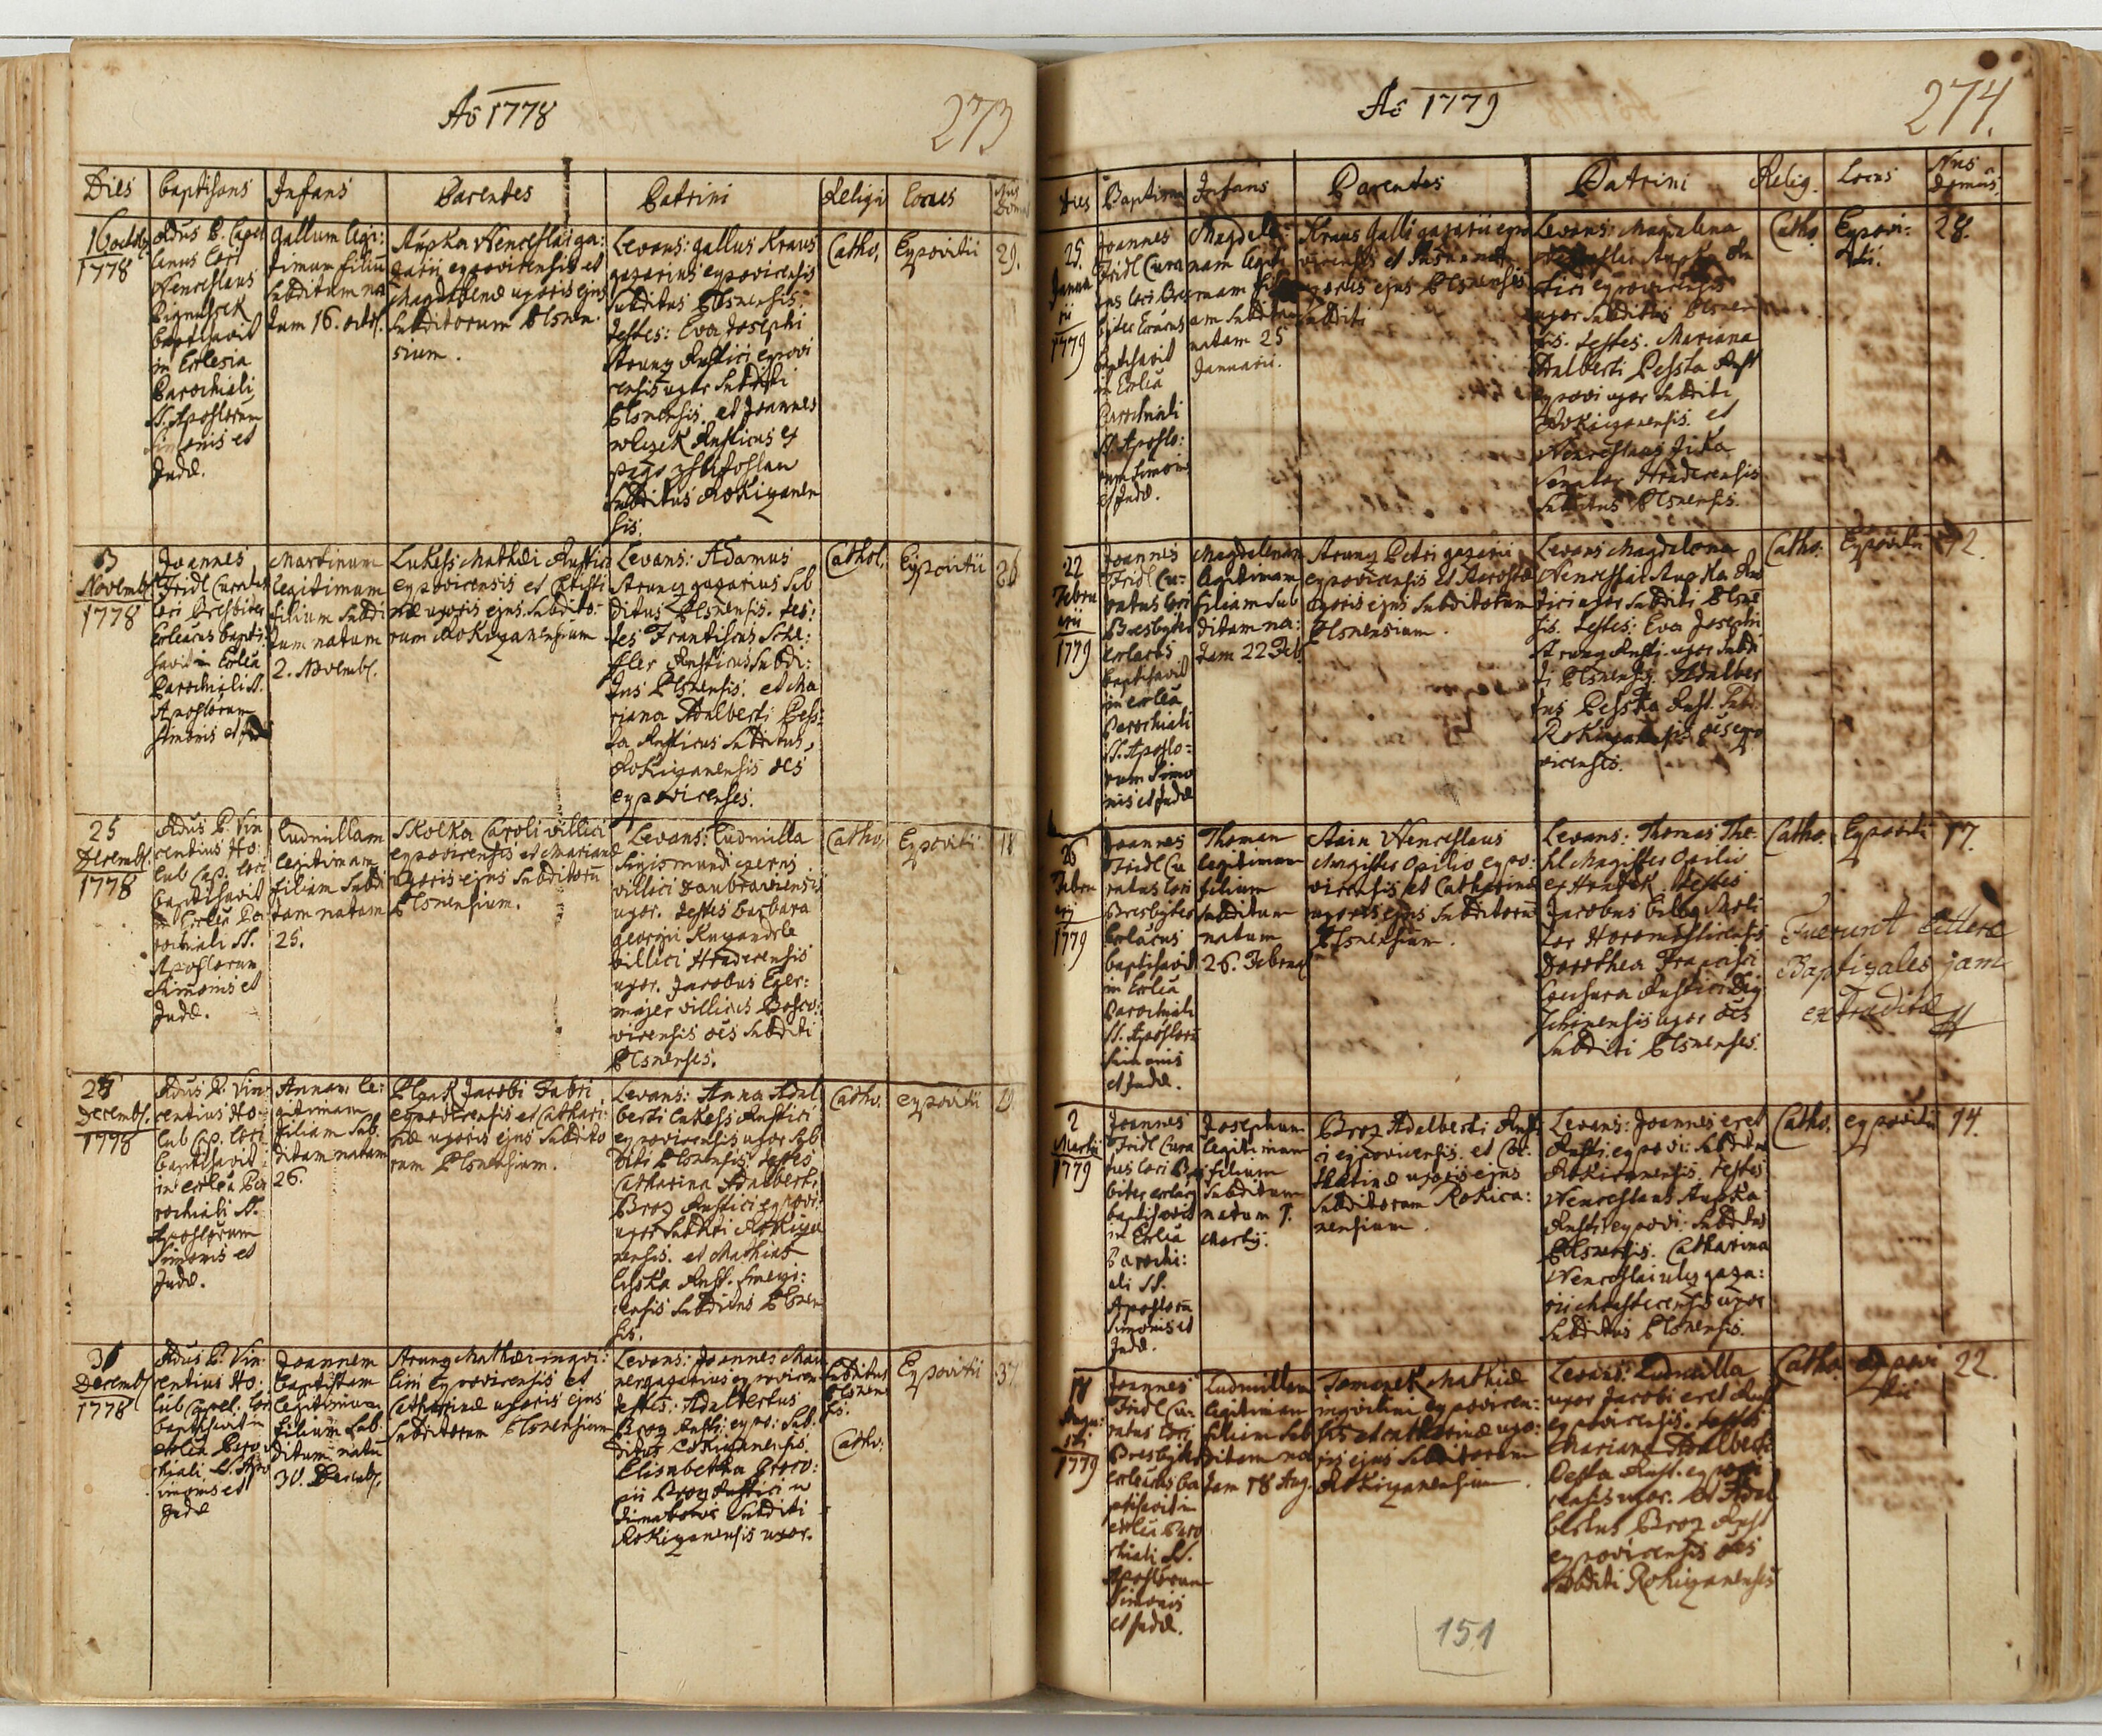 Aō 1778
273
Dies Baptisans Infans Parentes Patrini Religio Locus Nus Domus
16 octob
1778
Adus P. Capel
lanus Loci
Wenceslaus
baptisavit
in Ecclesia
Parochiali
SS. Apostolorum
Simonis et
Judæ.
Gallum legi:
timum filiū
subditum na
tum 16. octob.
Aupka Wenceslai ga:
zarii eypovicensis et
Magdalenæ uxoris ejus
subditorum Plsnen:
sium.
Levans: Gallus Kraus
gazarius eypovicensis
subditus Plsnensis.
testes: Eva Josephi
Strung Rustici eypovi
censis uxor subditi
Plsnensis, et Joannes
Rusticus ex
pago
subditus Rokizanen
sis.
Catho.
Eypovitii
29.
3
Novembr.
1778
Joannes
Fridl Curatus
loci Presbiter
Ecleaus bapti:
savit in Eccla
Parochiali SS.
Apostolorum
Simonis et
Martinum
legitimum
filium subdi
tum natum
2. Novembr.
Lukess Mathæi Rustici
eypovicensis et Christi
næ uxoris ejus subdito:
rum Rokizanensium
Levans: Adamus
Strung gazarius sub
ditus Plsnensis. tes:
tes Frantiscus
Rusticus subdi:
tus Plsnensis. et Ma
riana Adalberti Pess:
ta Rusticus subditus
Rokizanensis oēs
eypovicenses.
Cathol.
Eypovitii
26
25
Decembr.
1778
Adus P. Vin
centius Ho:
lub Cap. loci
baptisavit
in Eccla Pa
rochiali SS.
Apostolorum
Simonis et
Judæ.
Ludmillam
legitimam
filiam subdi
tam natam
25.
Skolka Caroli villici
eypovicensis et Marianæ
uxoris ejus subditorū
Plsnensium.
Levans: Ludmilla
Sigismundi
villici
uxor. testes Barbara
Georgii
villici Hradecensis
uxor. Jacobus Eger:
majer villicus Bosco:
vicensis oēs subditi
Plsnenses.
Catho.
Eypovitii
18
Decembr.
1778
Adus P. Vin
centius Ho:
lub Cap. loci
baptisavit
in eccla Pa
rochiali SS.
Apostolorum
Simonis et
Judæ.
Annam le:
gitimam
filiam sub:
ditam natam
26.
Jacobi Fabri
eypovicensis et Cathari:
næ uxoris ejus subdito
rum Plsnensium.
Levans: Anna Adal
berti Lukess Rustici
eypovicensis uxor sub
diti Plsnensis testes
Catharina Adalberti
Broz Rustici eypovi:
uxor subditi Rokiza
nensis. et Mathias
Rust.
censis subditus Plsnen
sis.
Catho.
eypovitii
Decembr.
1778
Adus P. Vin
centius Ho:
lub Capel. loci
baptisavit in
eccla Paro
chiali SS. Apo
Simonis et
Judæ
Joannem
Baptistam
legitimum
filium sub
ditum natū
30. Decemb.
Strung Mathæi inqvi:
lini eypovicensis et
Catharinæ uxoris ejus
subditorum Plsnensium
Levans: Joannes
gazarius eypovicen
testes: Adalbertus
Broz Rusti: eypo: sub:
ditus Rokizanensis.
Elisabetha
Broz Rustici
subditi
Rokizanensis uxor.
subditus
Plsnen
sis.
Catho:
Eypovitii
37
Aō 1779
274.
Dies Baptisans Infans Parentes Patrini Relig. Locus Nus Domus
25.
Janua
rii
1779
Joannes
Fridl Cura
tus loci Pres
biter Ecleaus
baptisavit
in Eccla
Parochiali
SS. Aposto:
rum Simonis
et Judæ.
Magdale:
nam legiti
mam fili
am subditam
natam 25
Januarii.
Kraus Galli gazarii eypo
vicensis et
uxoris ejus Plsnensis
subditi
Levans: Magdalena
Aupka Ru
stici eypovicensis
uxor subditus Plsnen
sis. testes. Mariana
Adalberti Pessta Rust
eypovi uxor subditi
Rokizanensis. et
Wenceslaus Jirka
Senator Hradecensis
subditus Plsnensis.
Catho.
Eypovi:
tii.
28.
22
Febru
arii
1779
Joannes
Fridl Cu:
ratus loci
Presbyter
baptisavit
in eccla
Parochiali
SS. Aposto:
rum Simo
nis et Judæ
Magdalenam
legitimam
filiam sub
ditam na:
tam 22 Feb.
Strung Petri gazarii
eypovicensis et
uxoris ejus subditorum
Plsnensium.
Levans Magdalena
Wenceslai Aupka Rus
tici uxor subditi Plsnē
sis. testes: Eva Josephi
Strung Rusti. uxor subdi
ti Plsnensis. Adalber
tus Pessta Rust. sub:
Rokizanensis oēs eypo
vicensis.
Catho.
Eypovitii
12.
26
Febru
arij
1779
Joannes
Fridl Cu
ratus loci
Presbyter
Ecleaus
baptisavit
in Eccla
Parochiali
SS. Apostolorū
Simonis
et Judæ.
Thomam
legitimum
filium
subditum
natum
26. Februarij
Stain Wenceslaus
Magister opilio eypo:
vicensis et Catharinæ
uxoris ejus subditorū
Plsnensium.
Levans: Thomas
Magister opilio
ex Hradek. testes
Jacobus
Dorothea Francisci
Rustici
uxor oēs
subditi Plsnenses.
Catho.
Eypovitii
17.
Fuerunt litteræ
Baptizales jam
extraditæ
2
Martii
1779
Joannes
Fridl Cura
tus loci Pres
biter
baptisavit
in Eccla
Parochi:
ali SS.
Apostolorū
Simonis et
Judæ.
Josephum
legitimum
filium
subditum
natum 1.
Martij.
Broz Adalberti Rust
ici eypovicensis. et Ca:
tharinæ uxoris ejus
subditorum Rokica:
nensium.
Levans: Joannes eret
Rusti. eypovi: subditus
Rokicanensis. testes
Wenceslaus Aupka
Rusti eypovi: subditus
Plsnensis. Catharina
Wenceslai gaza:
rii uxor
subditus Plsnensis.
Catho.
eypovitii
14.
18
Augu:
sti
1779
Joannes
Fridl Cu:
ratus loci
Presbyter
Ecleaus ba
ptisavit in
eccla Paro
chiali SS.
Apostolorum
Simonis
et Judæ.
Ludmillam
legitimam
filiam sub
ditam na
tam 18 Aug.
Tomenek Mathiæ
inqvilini eypovicen:
sis et Catharinæ uxo:
ris ejus subditorum
Rokizanensium.
Levans: Ludmilla
uxor Jacobi eret Rust
eypovicensis. testes
Mariana Adalberti
Pessta Rust. eypovi
censis uxor. et Adal
bertus Broz Rust
eypovicensis oēs
subditi Rokizanensis
Catho.
eypovi
tii
22.
151